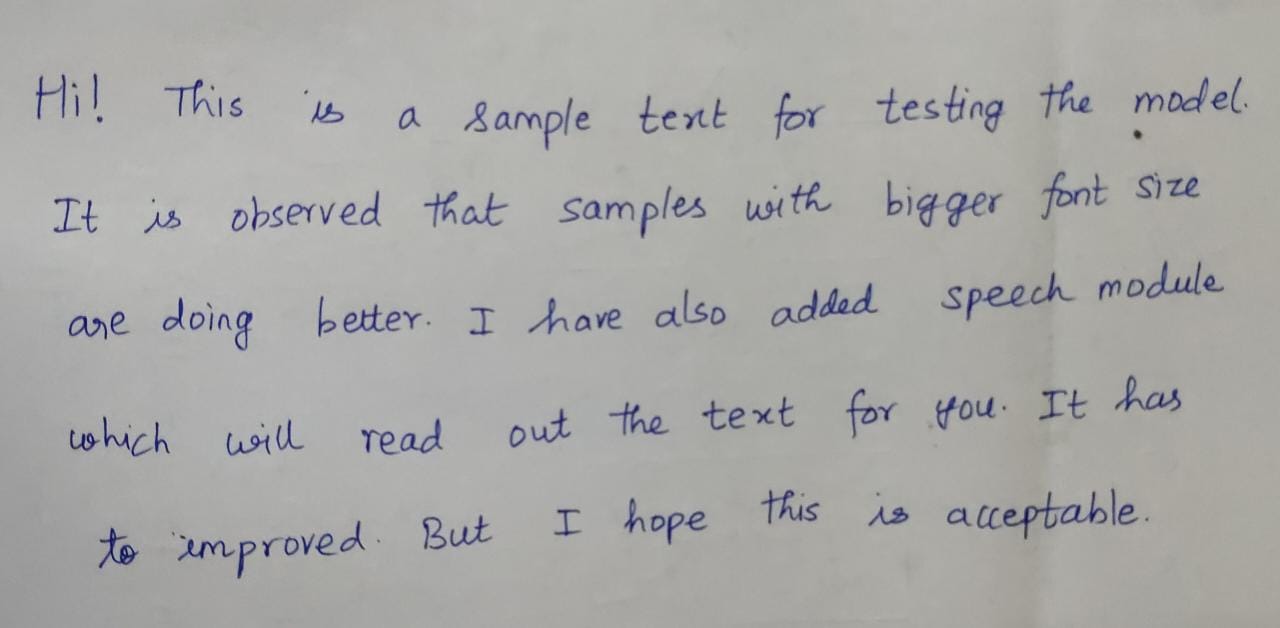 Hi! This is a sample text for testing the model.
It is observed that samples with bigger font size
are doing better. I have also added speech module
which will read out the text for you. It has
to improved. But I hope this is acceptable.